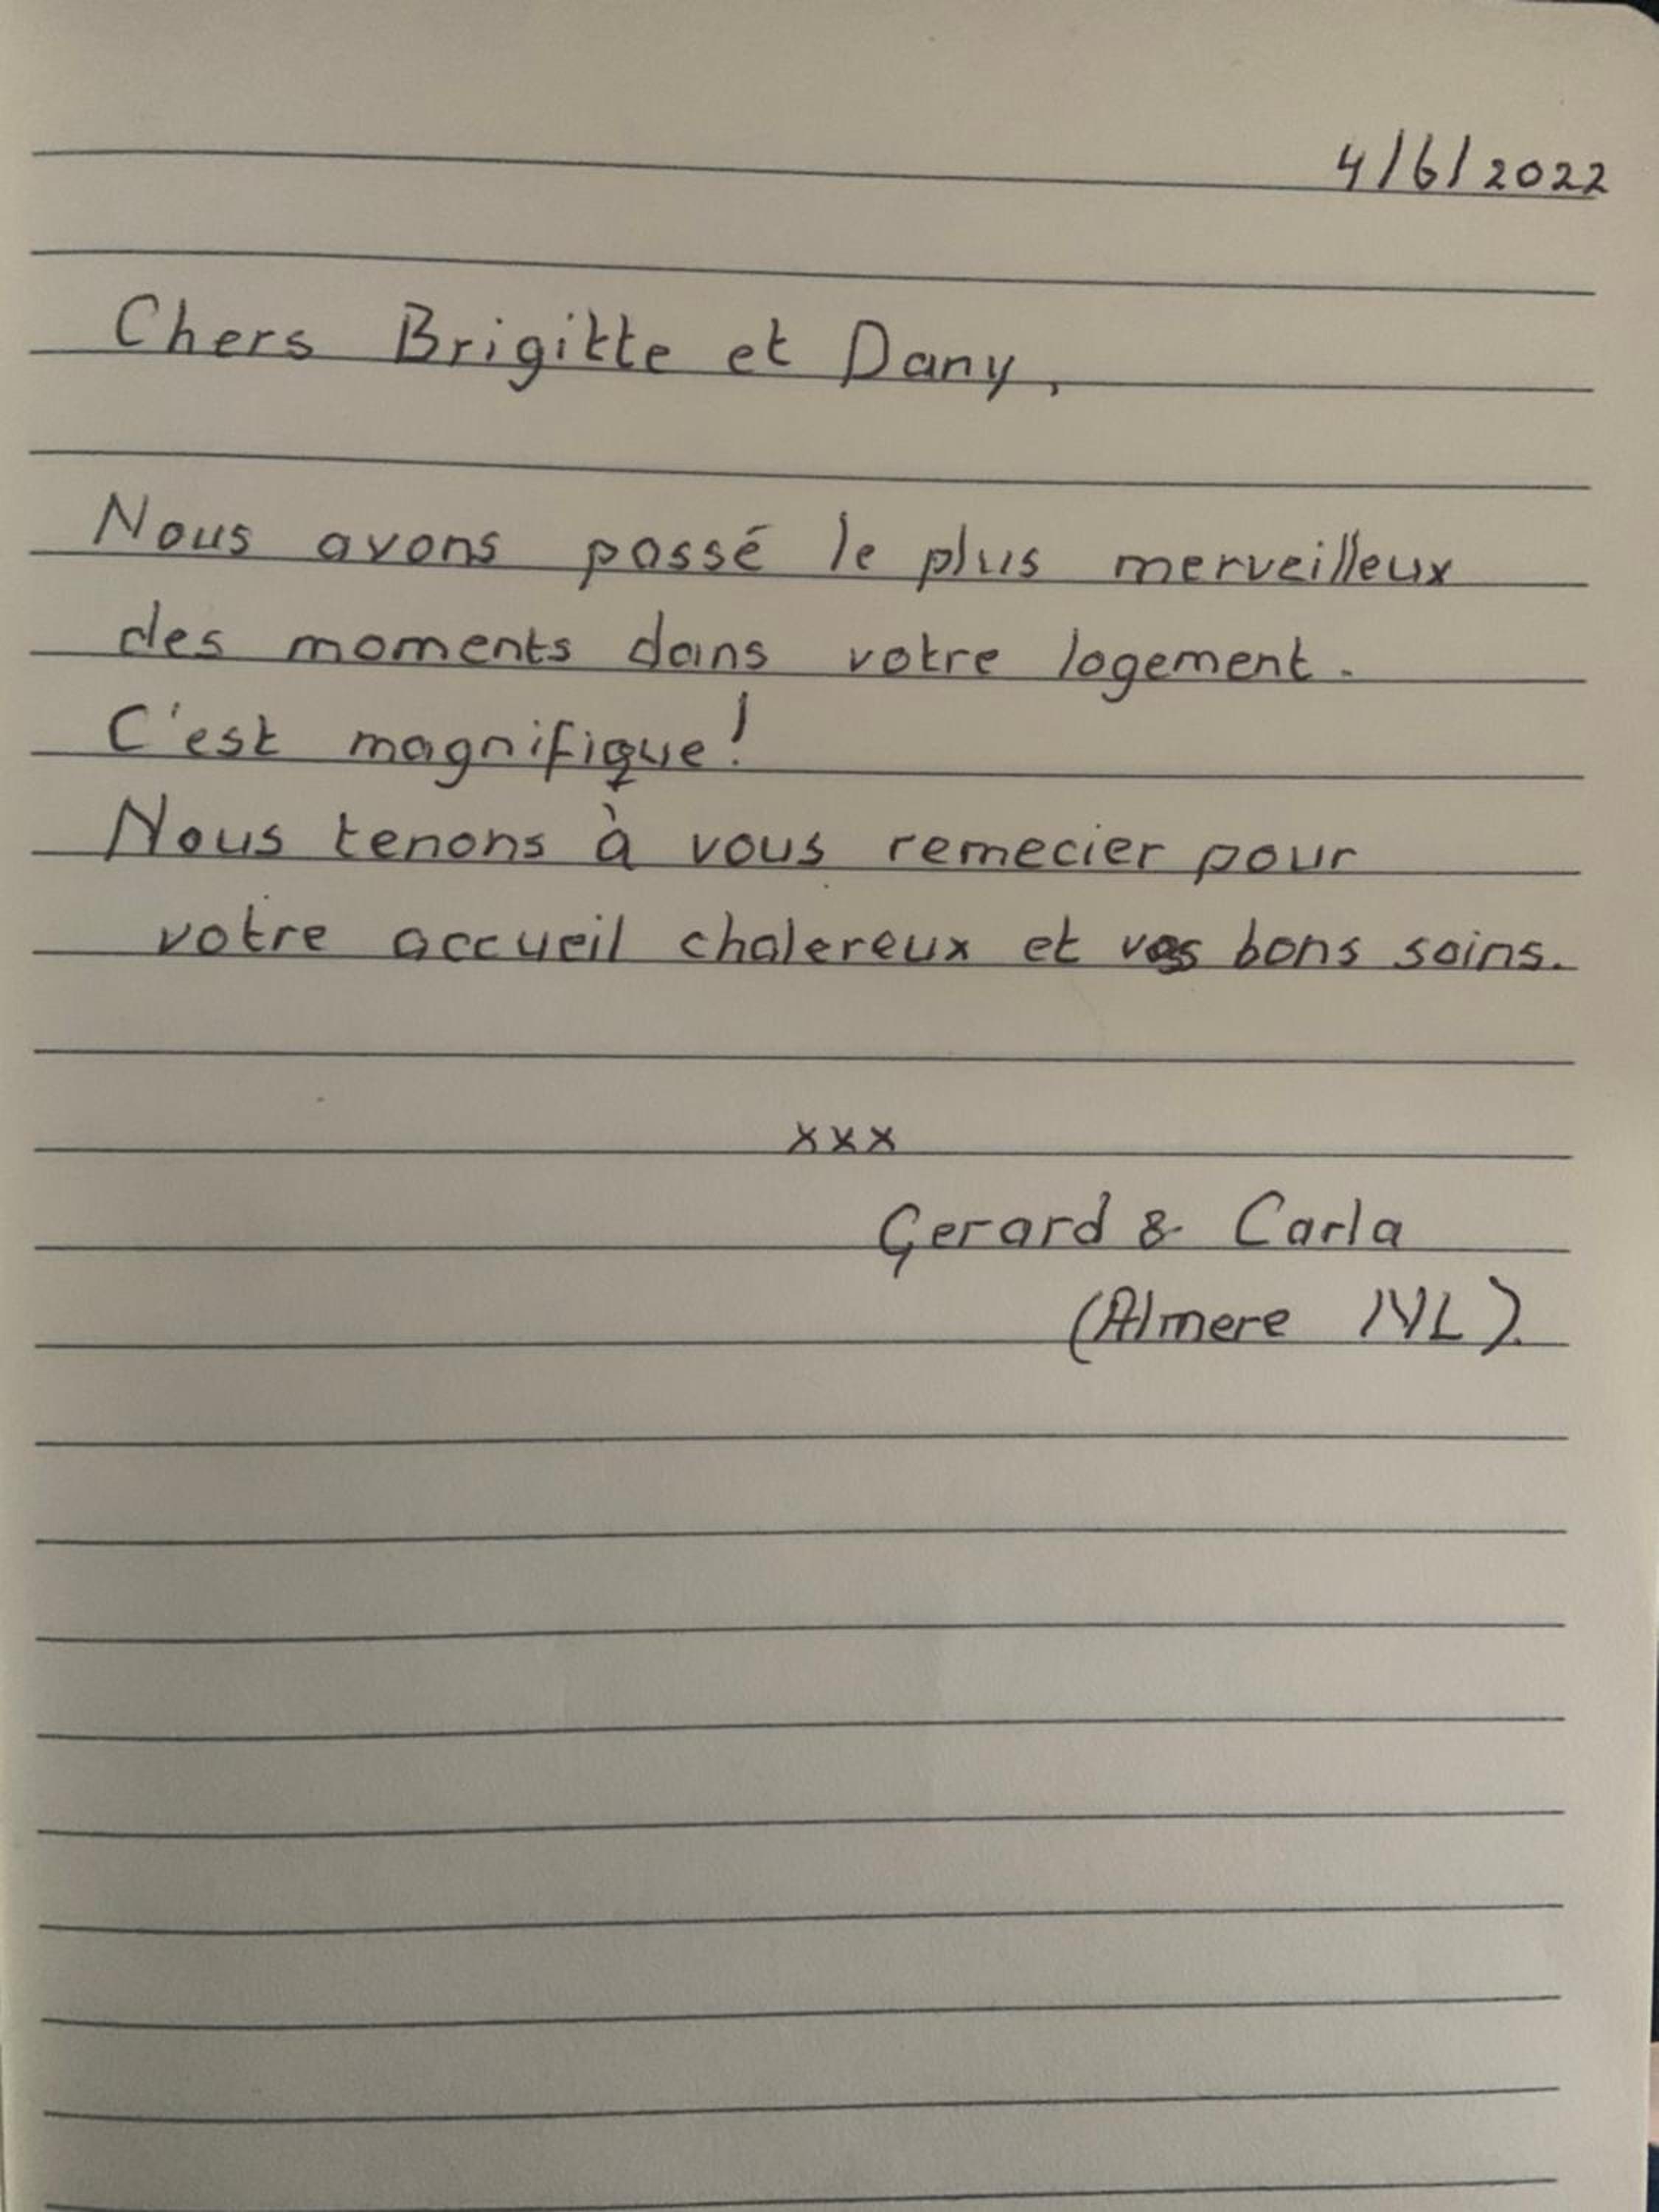 4/6/2022
Chers Brigitte et Dany,
Nous avons passé le plus merveilleux
des moments dans votre logement.
C'est magnifique!
Nous tenons à vous remecier pour
votre accueil chalereux et vos bons soins.
xxx
Gerard & Carla
(Almere NL).